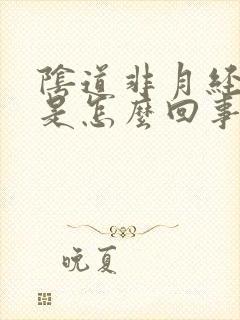 陰道非月經
是怎麼回事
晚夏